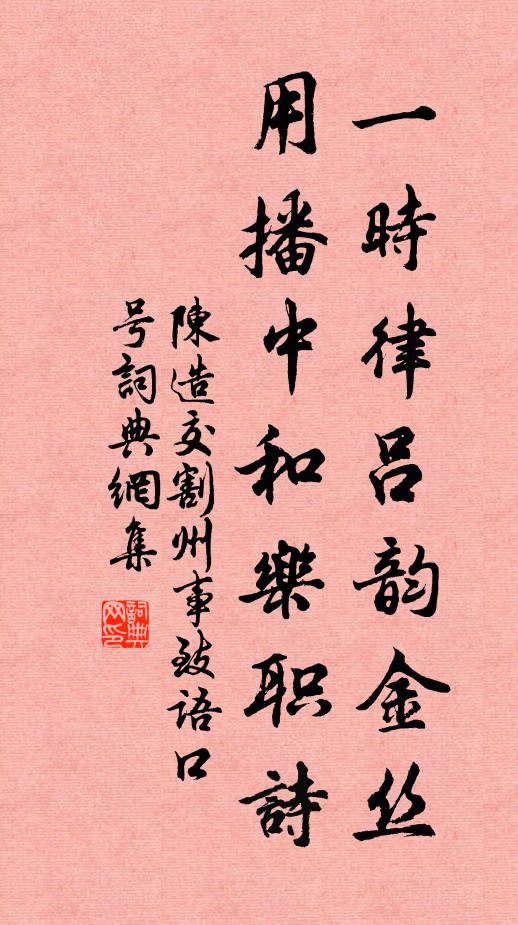 一時律吕韵金丝
用播中和樂职詩
陳造交割州事致语口
号詞典網集
詞典网印